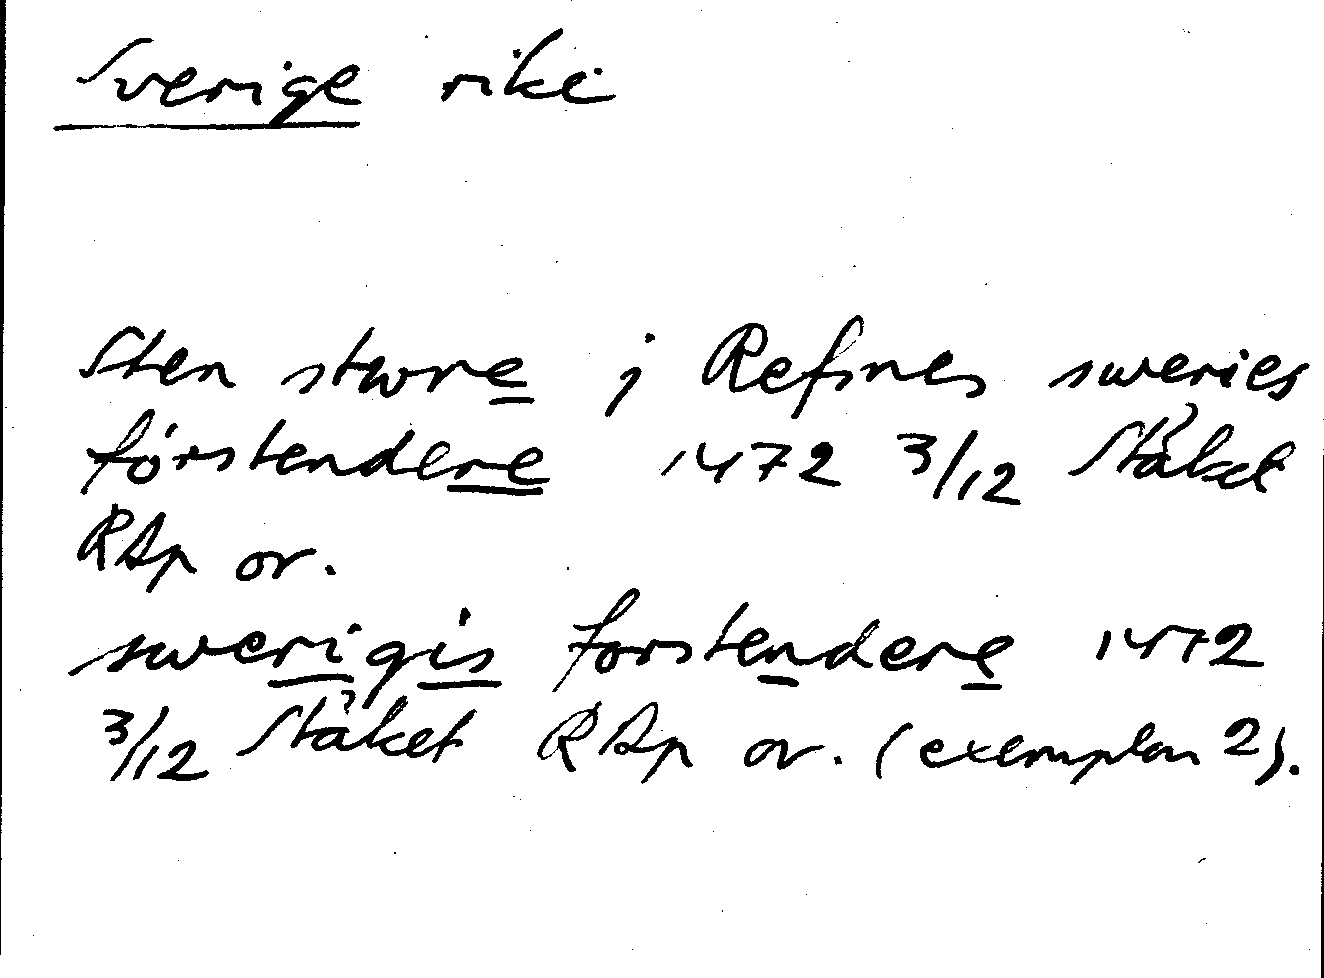 Sverige rike
Sten stwre j Refsnes sweries
förstendere 1472 3/12 Stäket
RAp or.
swerigis forstendere 1472
3/12 Stäket RAp or. (exemplar 2).